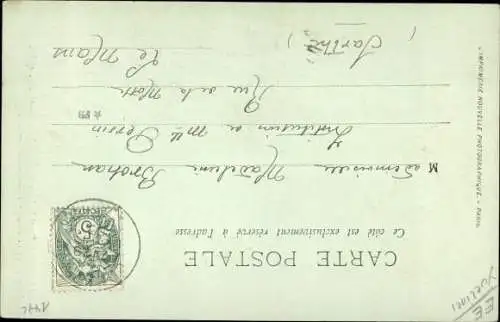 CARTE POSTALE
Ce côté est exclusivement réservé à l'adresse
M ademoiselle Madeleine Brohan
Institution de Mlle Perrin
Rue de la Motte
Le Mans
(Sarthe)
IMPRIMERIE NOUVELLE PHOTOGRAPHIQUE - PARIS
5
EE